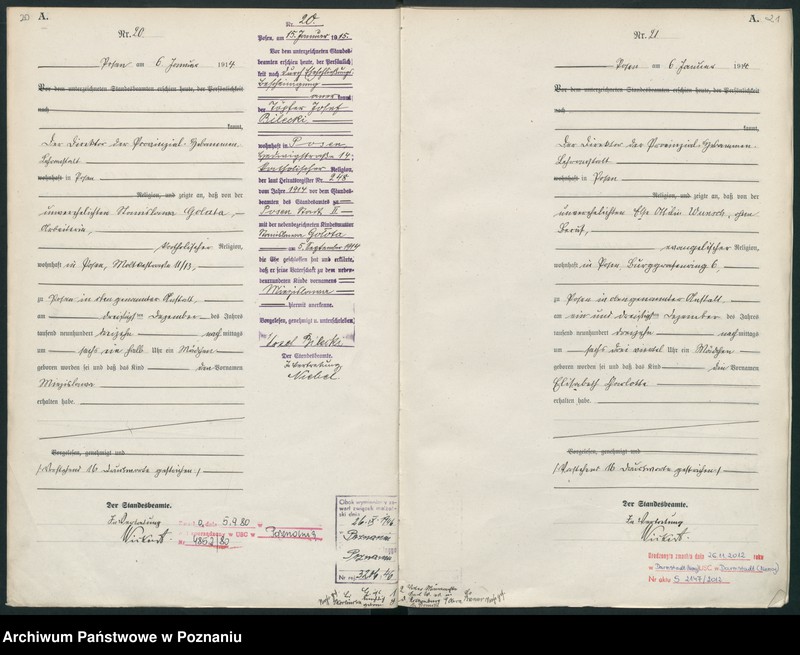 20 A.
Nr. 20
Posen am 6. Januar 1914
Vor dem unterzeichneten Standesbeamten erschien heute, der Persönlichkeit
nach
kannt,
Der Direktor der Provinzial-Hebammen-
Lehranstalt
wohnhaft in Posen
Religion, und zeigte an, daß von der
unverehelichten Stanislawa Golata,
Arbeiterin,
katholischer Religion,
wohnhaft in Posen,
zu Posen in obengenannter Anstalt,
am dreißigsten Dezember des Jahres
tausend neunhundert dreizehn nachmittags
um sechs ein halb Uhr ein Mädchen
geboren worden sei und daß das Kind den Vornamen
Miezislawa
erhalten habe.
Vorgelesen, genehmigt und
Vorstehend 16 Druckworte gestrichen
Der Standesbeamte.
In Vertretung
Nr. 20.
Posen, am 15. Januar 1915.
Vor dem unterzeichneten Standes-
beamten erschien heute, der Persönlich-
keit nach durch Eheschließungs-
bescheinigung
anerkannt
der Töpfer Josef
Bilecki
wohnhaft in Posen
Hedwigstraße 14,
katholischer Religion,
der laut Heiratsregister Nr. 248
vom Jahre 1914 vor dem Standes-
beamten des Standesamts zu
Posen Stadt II.
mit der nebenbezeichneten Kindesmutter
Stanislawa Golota
am 5. September 1914
die Ehe geschlossen hat und erklärte,
daß er seine Vaterschaft zu dem neben-
bezeichneten Kinde vornamens
Miezislawa
hiermit anerkenne.
Vorgelesen, genehmigt u. unterschrieben
Josef Bilecki
Der Standesbeamte.
In Vertretung
Niebel
dnia 5.9.80
w USC w
Nr 485/2/80
26 IX 1946
Poznaniu
Poznaniu
Nr 3286/46
A. 21
Nr. 21
Posen am 6. Januar 1914
Vor dem unterzeichneten Standesbeamten erschien heute, der Persönlichkeit
nach
kannt,
Der Direktor der Provinzial-Hebammen-
Lehranstalt
wohnhaft in Posen
Religion, und zeigte an, daß von der
unverehelichten Wunsch, ohne
Beruf,
evangelischer Religion,
wohnhaft in Posen Burggrafenring 6,
zu Posen in obengenannter Anstalt
am ein und dreißigsten Dezember des Jahres
tausend neunhundert dreizehn nachmittags
um sechs drei viertel Uhr ein Mädchen
geboren worden sei und daß das Kind den Vornamen
Elisabeth Charlotte
erhalten habe.
Vorgelesen, genehmigt und
Vorstehend 16 Druckworte gestrichen
Der Standesbeamte.
In Vertretung
zmarła dnia 26.11.2012 roku
w Darmstadt USC w Darmstadt (Niemcy)
Nr aktu S 2147/2012
Archiwum Państwowe w Poznaniu